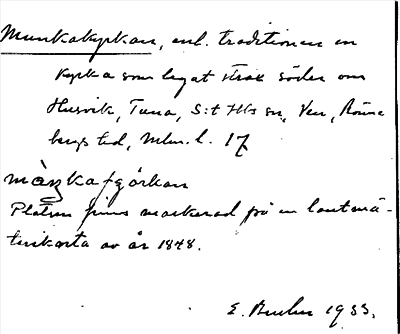 Munkakyrkan, enl. traditionen en
kyrka som legat strax söder om
Husvik, Tuna, S:t Ibs sn, Ven, Rönne
bergs hd, Mlm. l. 17
màŋkaɟɡörkan
Platsen finns markerad på en lantmä-
terikarta av år 1848.
E. 1933.